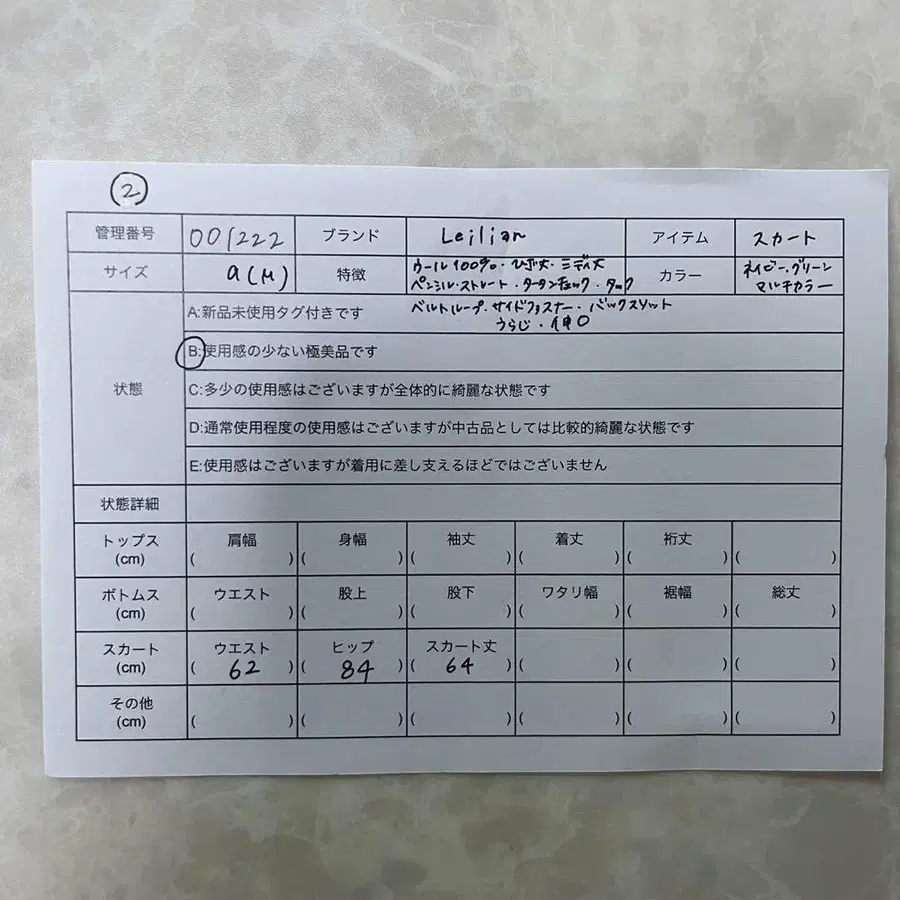 ②
管理番号 001222 ブランド Leilian アイテム スカート
サイズ 9(M) 特徴 ウール100%・ひざ丈・ミディ丈 カラー ネイビー・グリーン
ペンシル・ストレート・タータンチェック・タック マルチカラー
ベルトループ・サイドファスナー・バックスリット
うらじ・
状態
A:新品未使用タグ付きです
B:使用感の少ない極美品です
C:多少の使用感はございますが全体的に綺麗な状態です
D:通常使用程度の使用感はございますが中古品としては比較的綺麗な状態です
E:使用感はございますが着用に差し支えるほどではございません
状態詳細
トップス 肩幅 身幅 袖丈 着丈 裄丈
(cm) ( ) ( ) ( ) ( ) ( ) ( )
ボトムス ウエスト 股上 股下 ワタリ幅 裾幅 総丈
(cm) ( ) ( ) ( ) ( ) ( ) ( )
スカート ウエスト ヒップ スカート丈
(cm) ( 62 ) ( 84 ) ( 64 ) ( ) ( ) ( )
その他
(cm) ( ) ( ) ( ) ( ) ( ) ( )